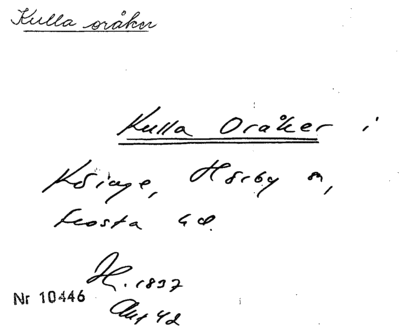 Kulla oråker
Kulla Oråker i
Köinge, Hörby sn,
Frosta hd.
H. 1837
Akt 42
Nr 10446